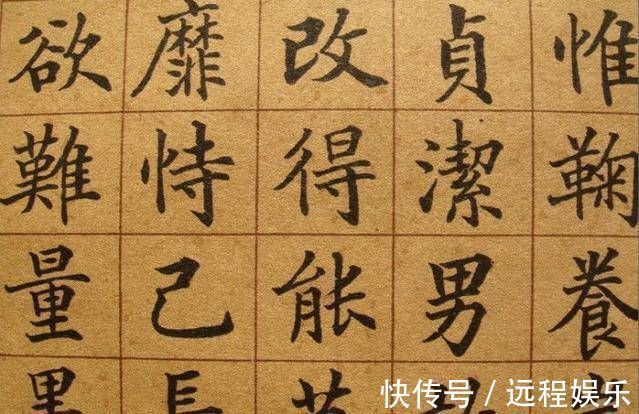 惟鞠養
貞潔男
改得能
靡恃己長
欲難量
快传号 / 远程娱乐